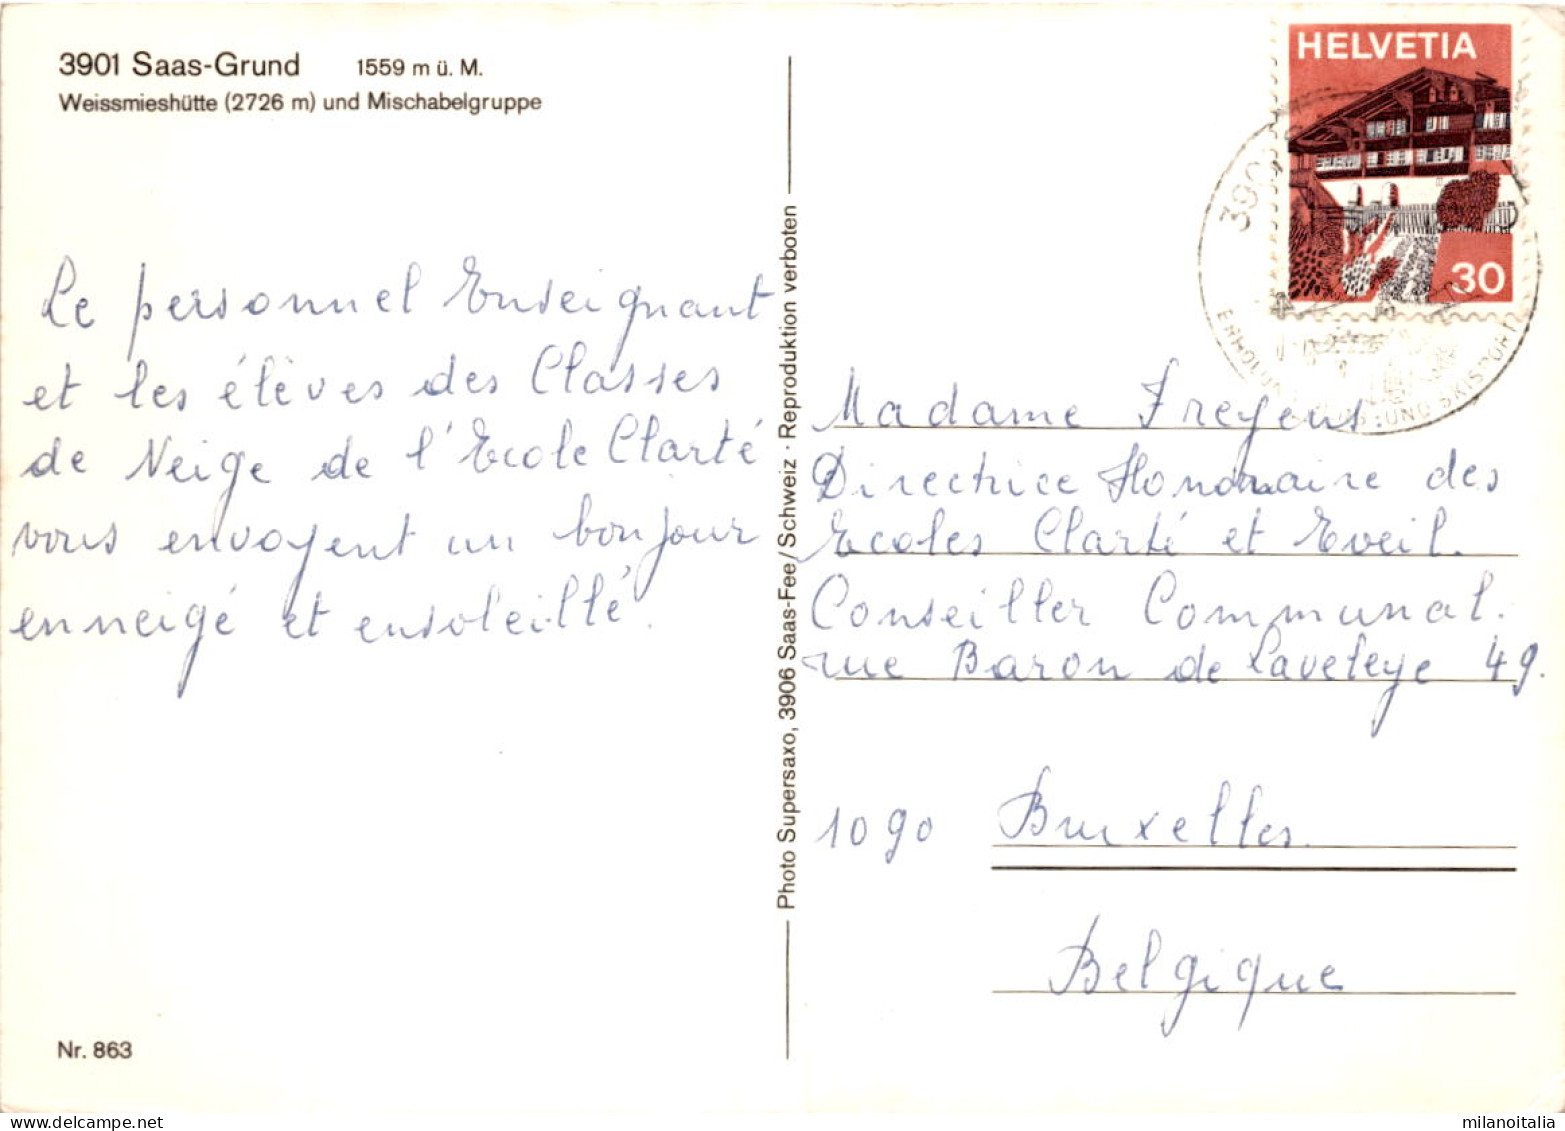 3901 Saas-Grund 1559 m ü. M.
Weissmieshütte (2726 m) und Mischabelgruppe
Le personnel Enseignant
et les élèves des Classes
de Neige de l'Ecole Clarté
vous envoyent un bonjour
enneigé et ensoleillé.
Nr. 863
Photo Supersaxo, 3906 Saas-Fee / Schweiz · Reproduktion verboten
HELVETIA
30
390
UND SKISPORT
Madame Freyens
Directrice Honoraire des
Ecoles Clarté et Eveil.
Conseiller Communal.
rue Baron de Laveleye 49.
1090 Bruxelles.
Belgique
milanoitalia